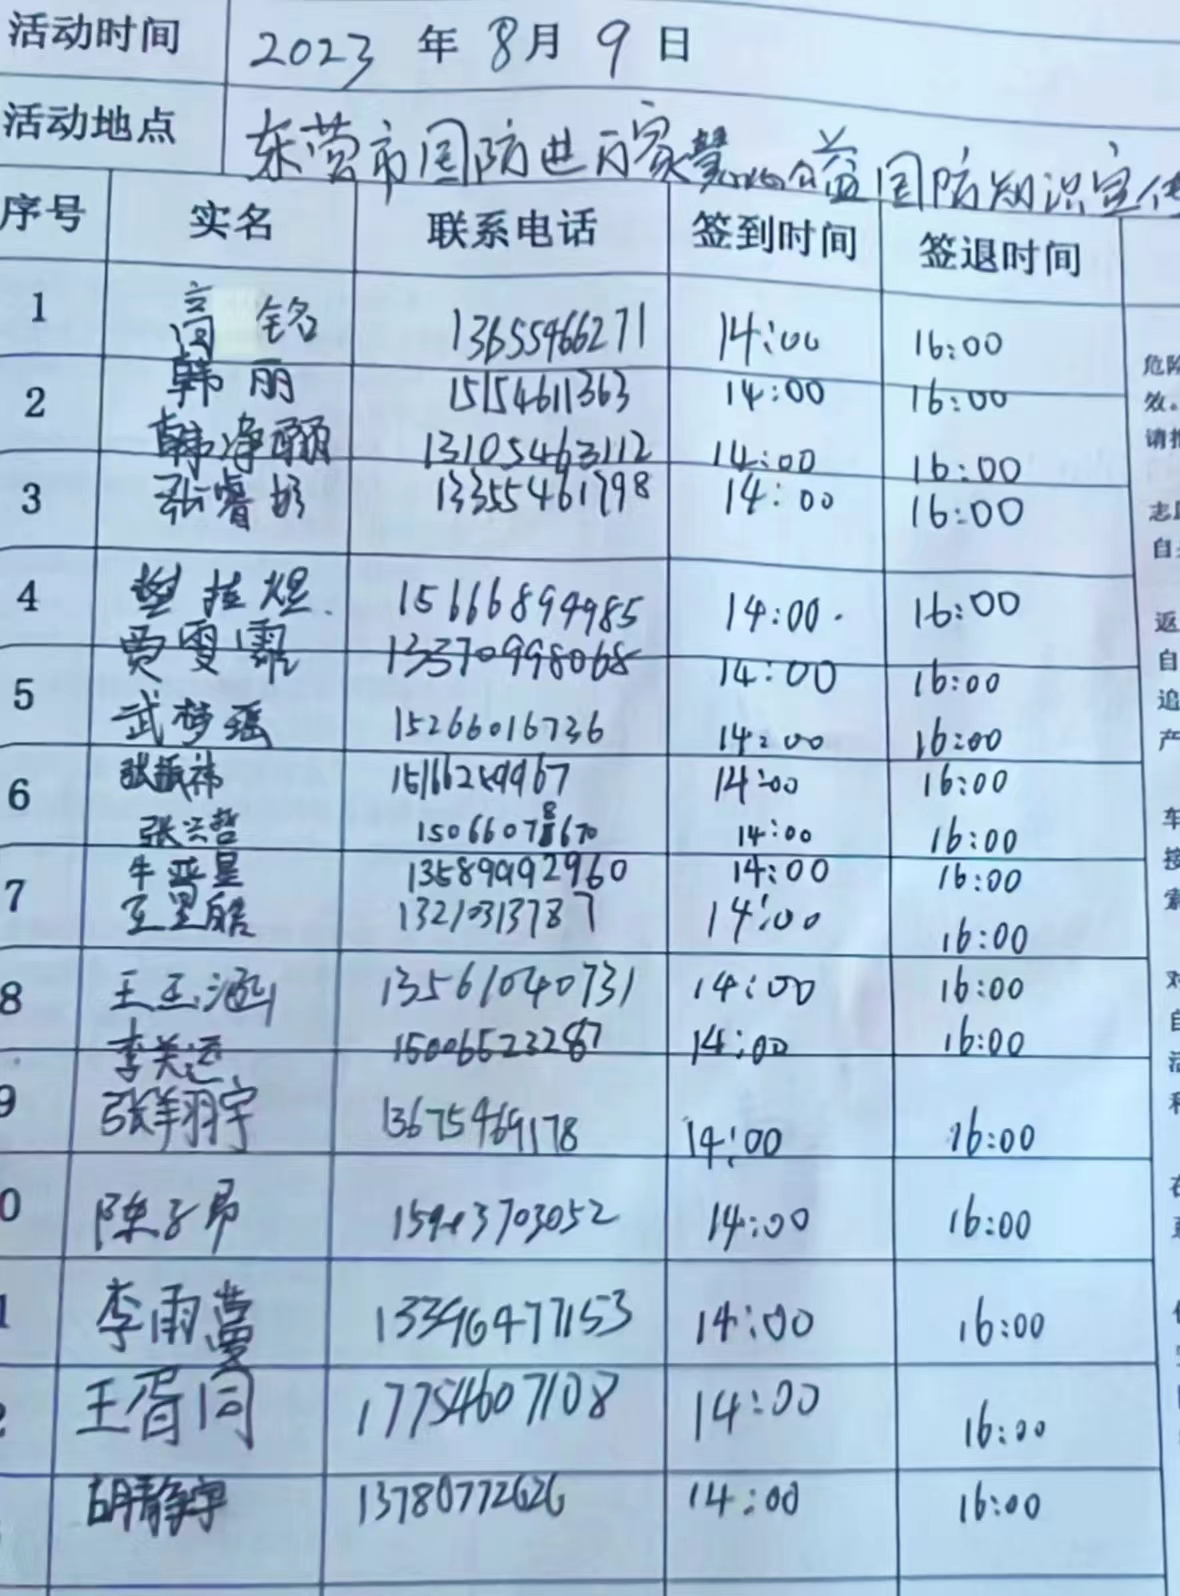 活动时间 2023 年 8月 9 日
活动地点 东营市国防进万家 公益国防知识宣传
序号 实名 联系电话 签到时间 签退时间
1 高铭 13655466271 14:00 16:00
韩丽 15154611363 14:00 16:00
2 韩净颐 13105463112 14:00 16:00
3 张睿 13355461798 14:00 16:00
4 煜 15666894985 14:00 16:00
贾雯霏 13370998068 14:00 16:00
5 武梦瑶 15266016736 14:00 16:00
6 张振祎 15166259967 14:00 16:00
张兴哲 14:00 16:00
牛亚星 13589992960 14:00 16:00
7 13210313787 14:00 16:00
8 王玉涵 13561040731 14:00 16:00
李美运 14:00 16:00
9 张翔宇 13675469178 14:00 16:00
0 陈子昂 14:00 16:00
1 李雨蔓 13396477153 14:00 16:00
王胥同 17754607108 14:00 16:00
胡静宇 13780772626 14:00 16:00
危险
效。
请
志
自
返
自
追
产
车
接
索
对
自
活
和
在